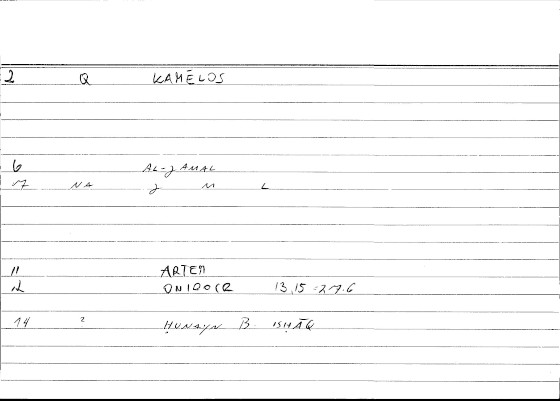 2 Q KAMĒLOS
6 AL-JAMAL
7 NA J M L
11 ARTEM
12 ONIROCR 13,15 = 27.6
14 2 ḤUNAYN B. ISḤĀQ